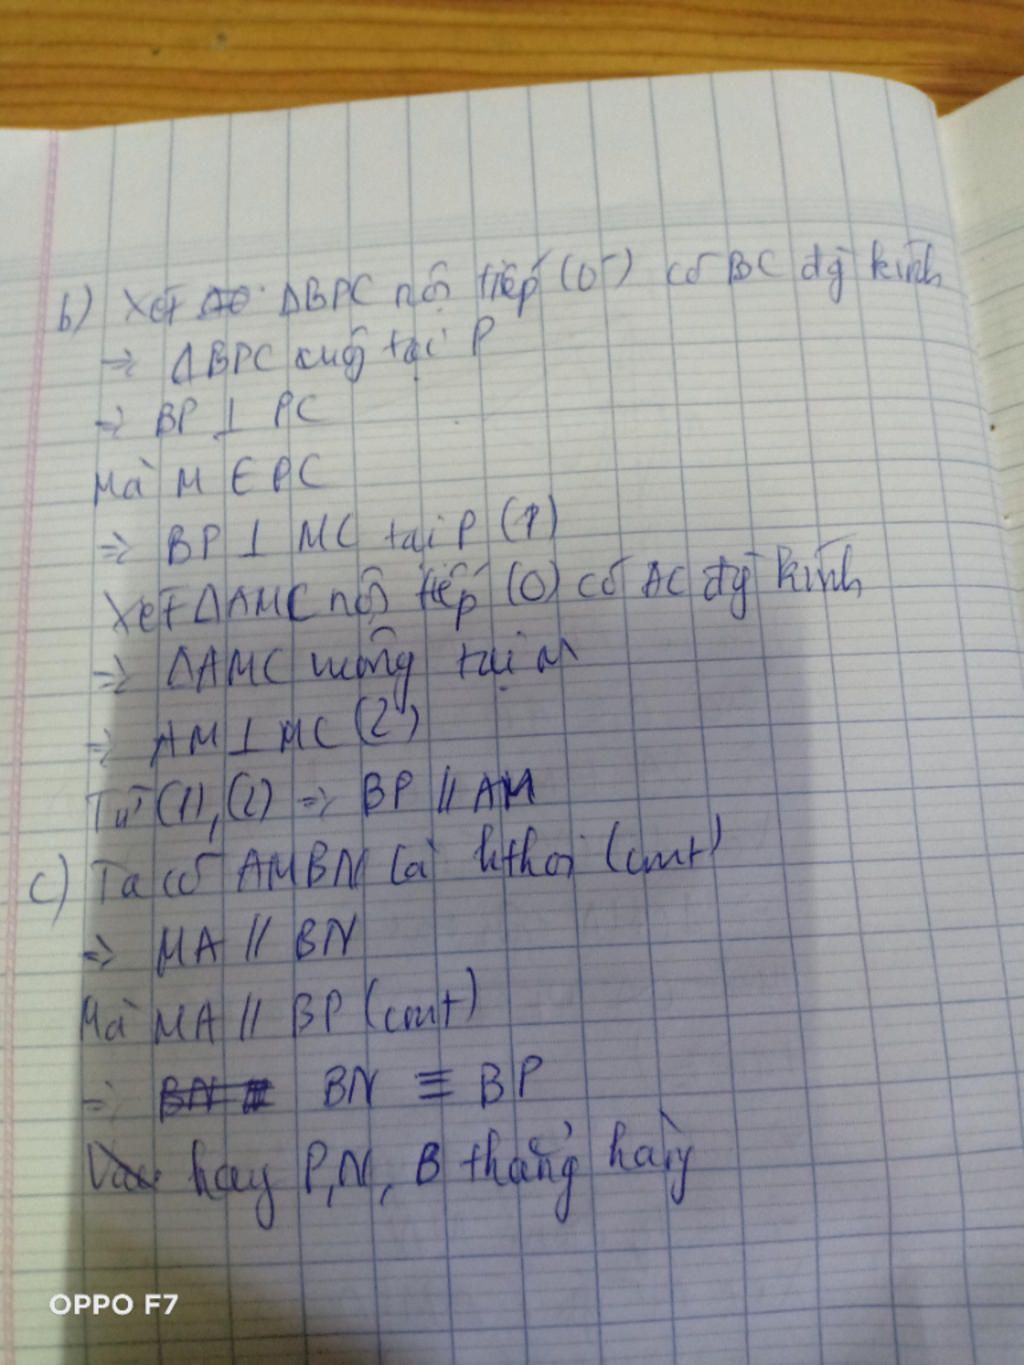 b) Xét ΔBPC nội tiếp (O') có BC đg kính
=> ΔBPC vuông tại P
=> BP ⊥ PC
Mà M ∈ PC
=> BP ⊥ MC tại P (1)
Xét ΔAMC nội tiếp (O) có AC đg kính
=> ΔAMC vuông tại M
=> AM ⊥ MC (2)
Từ (1), (2) => BP // AM
c) Ta có AMBN là hthoi (cmt)
=> MA // BN
Mà MA // BP (cmt)
=> BN ≡ BP
hay P, N, B thẳng hàng
OPPO F7